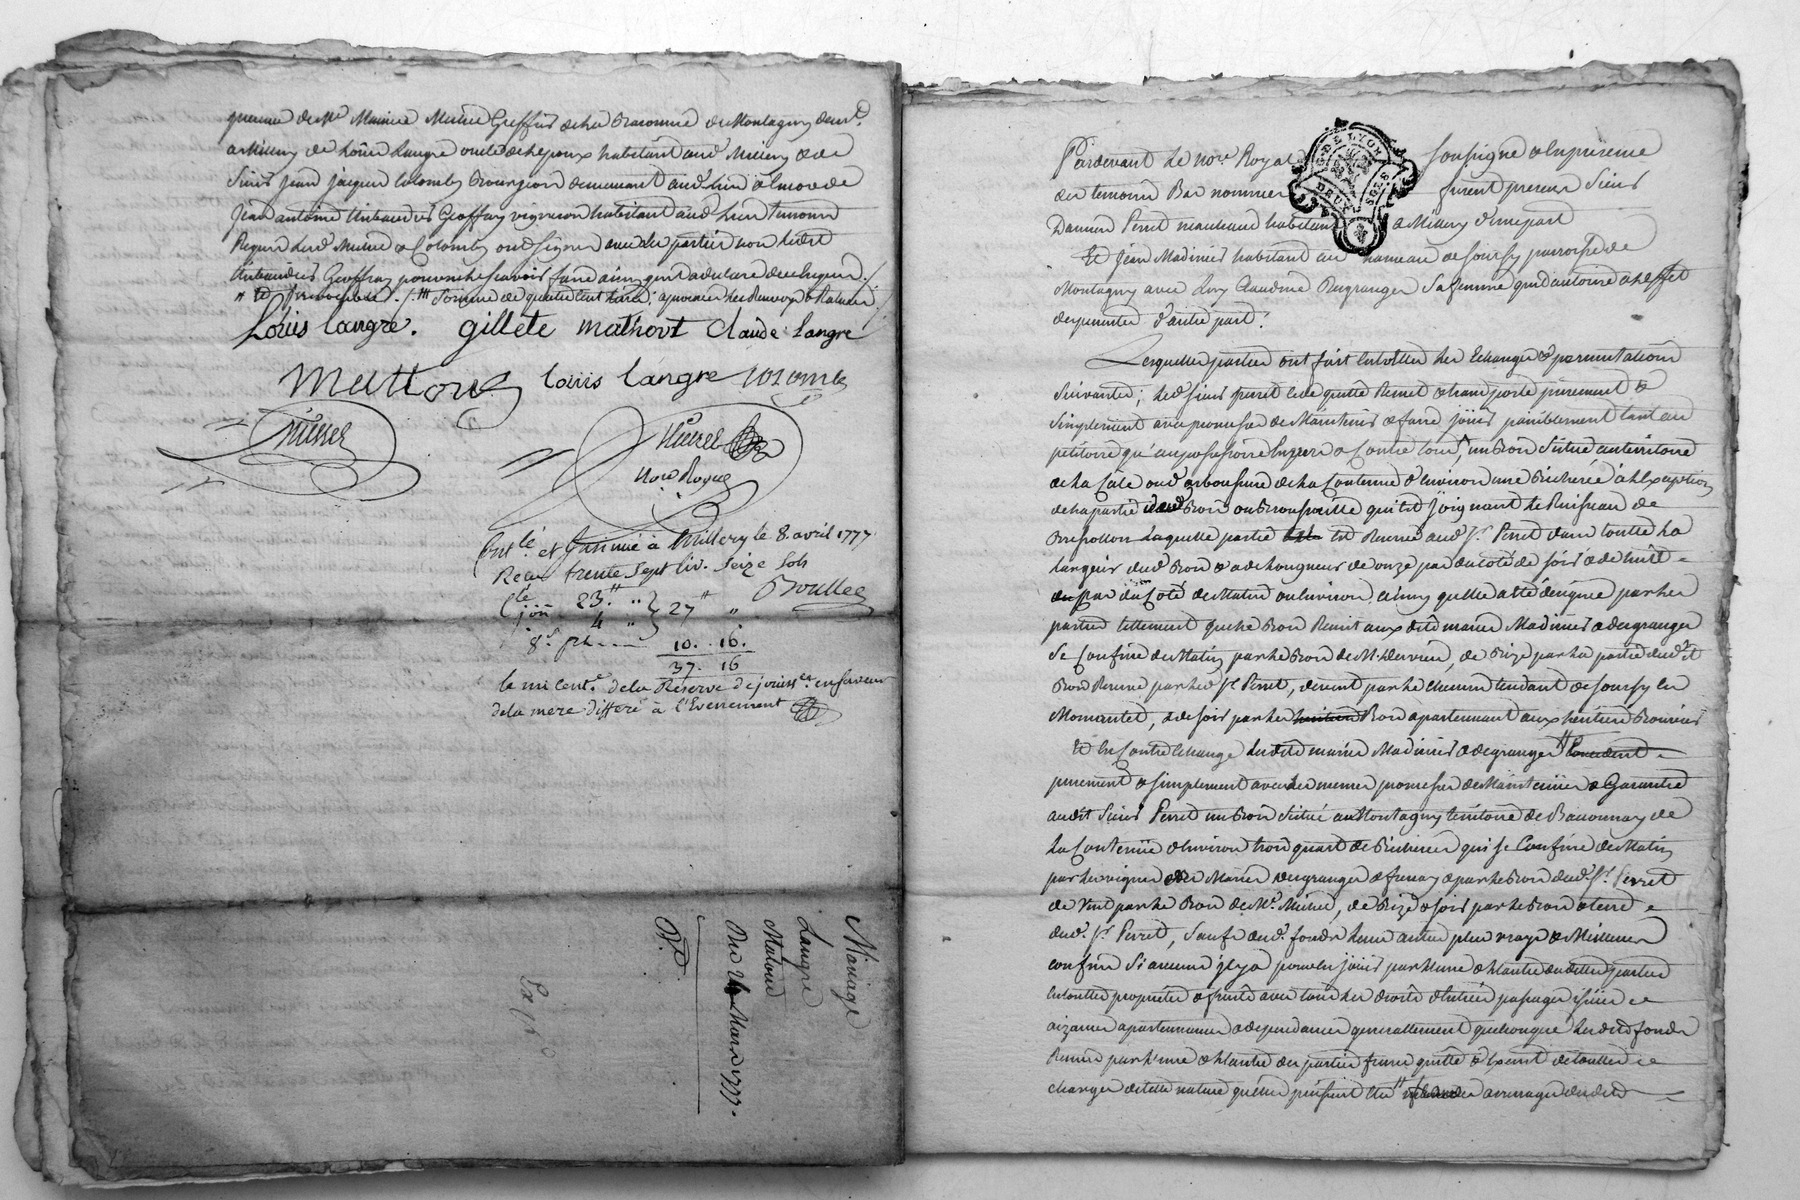 presence de Me Maurice Mutin Greffier de la Baronnie de Montagny demt.
a Millery de Louis Langre oncle de l'epoux habitant aud. Millery & de
Sieur Jean Jacques Colomby Bourgeois demeurant aud. lieu & encore de
Jean antoine Geoffray vigneron habitant aud. lieu temoins
Requis led. & Colomby ont signé avec les parties non ledit
Geoffray pour ne le scavoir faire ainsy qu'il a declaré de ce requis ./
somme de quatre cent livres; approuvés les Renvoys & Ratures
Louis langre. gillete mathout claude langre
Mattout louis langre colomby
Notre Royal
Ontlé. et Insinué à Millery le 8. avril 1777
Reçu trente sept liv. seize sols
23.tt " } 27tt "
4 "
8s. p.l. 10. . 16.
37. 16
le mi cente. de la Réserve de jouissce. en faveur
de la mere differé à l'Evenement
Mariage
Langre
Matout
Du Mars 1777.
Exp.
Pardevant le Nore Royal soussigné & en presence
des temoins Bas nommés furent presens Sieur
Perret marchand habitant a Millery d'une part
Et Jean Madinier habitant au hameau de Soursy parroisse de
Montagny avec Claudine Degranger sa femme qu'il autorise a l'effet
des presentes d'autre part;
G. DE LYON
DEUX SOLS
Lesquelles parties ont fait entr'elles les Echanges & permutations
suivantes; led. sieur perret cede quitte Remet & transporte purement &
simplement avec promesse de Maintenir & faire jouir paisiblement tant au
petitoire qu'au possessoire envers & Contre tous, un Bois situé au territoire
de la Cale oud. de la Contenue d'environ une Bicherée à l'Exception
de la partie dud. Bois ou Broussaille qui est joignant le Ruisseau de
laquelle partie est Reservée aud. Sr. Perret dans toutte la
largeur dud. Bois & a de longueur de onze pas du coté de soir & de huit
pas du Coté de Matin ou environ, ainsy qu'elle a eté designée par les
parties tellement que le Bois Remis aux dits mariés Madinier & degranger
se Confine de Matin par le Bois de Me. de Bize par la partie dudit
Bois Reservée par led. Sr. Perret, de vent par le Chemin tendant de Soursy en
& de soir par les Bois apartenant aux heritiers
Et en Contre Echange lesdits mariés Madinier & degranger
purement & simplement avec les memes promesses de Maintenir & Garantir
audit Sieur Perret un Bois situé au Montagny territoire de de
la Contenüe d'environ trois quart de Bicherée qui se Confine de Matin
par les vignes des Mariés degranger & & par le Bois dud. Sr. Perret
de Vent par le Bois de Me. Mutin, de Bize & soir par le Bois & terre
dud. Sr. Perret, Saufs desd. fonds leurs autres plus vrays & Meilleurs
confins si aucuns il y a pour en jouir par l'une & l'autre desdittes parties
en toutte proprieté & fruits avec tous les droits d'entrée passages issües
aizances apartenances & dependances generallement quelconques lesdits fonds
Remis par l'une & l'autre des parties francs quitte & Exempt de touttes
charges de telle nature qu'elles puissent etre arrerages desdits